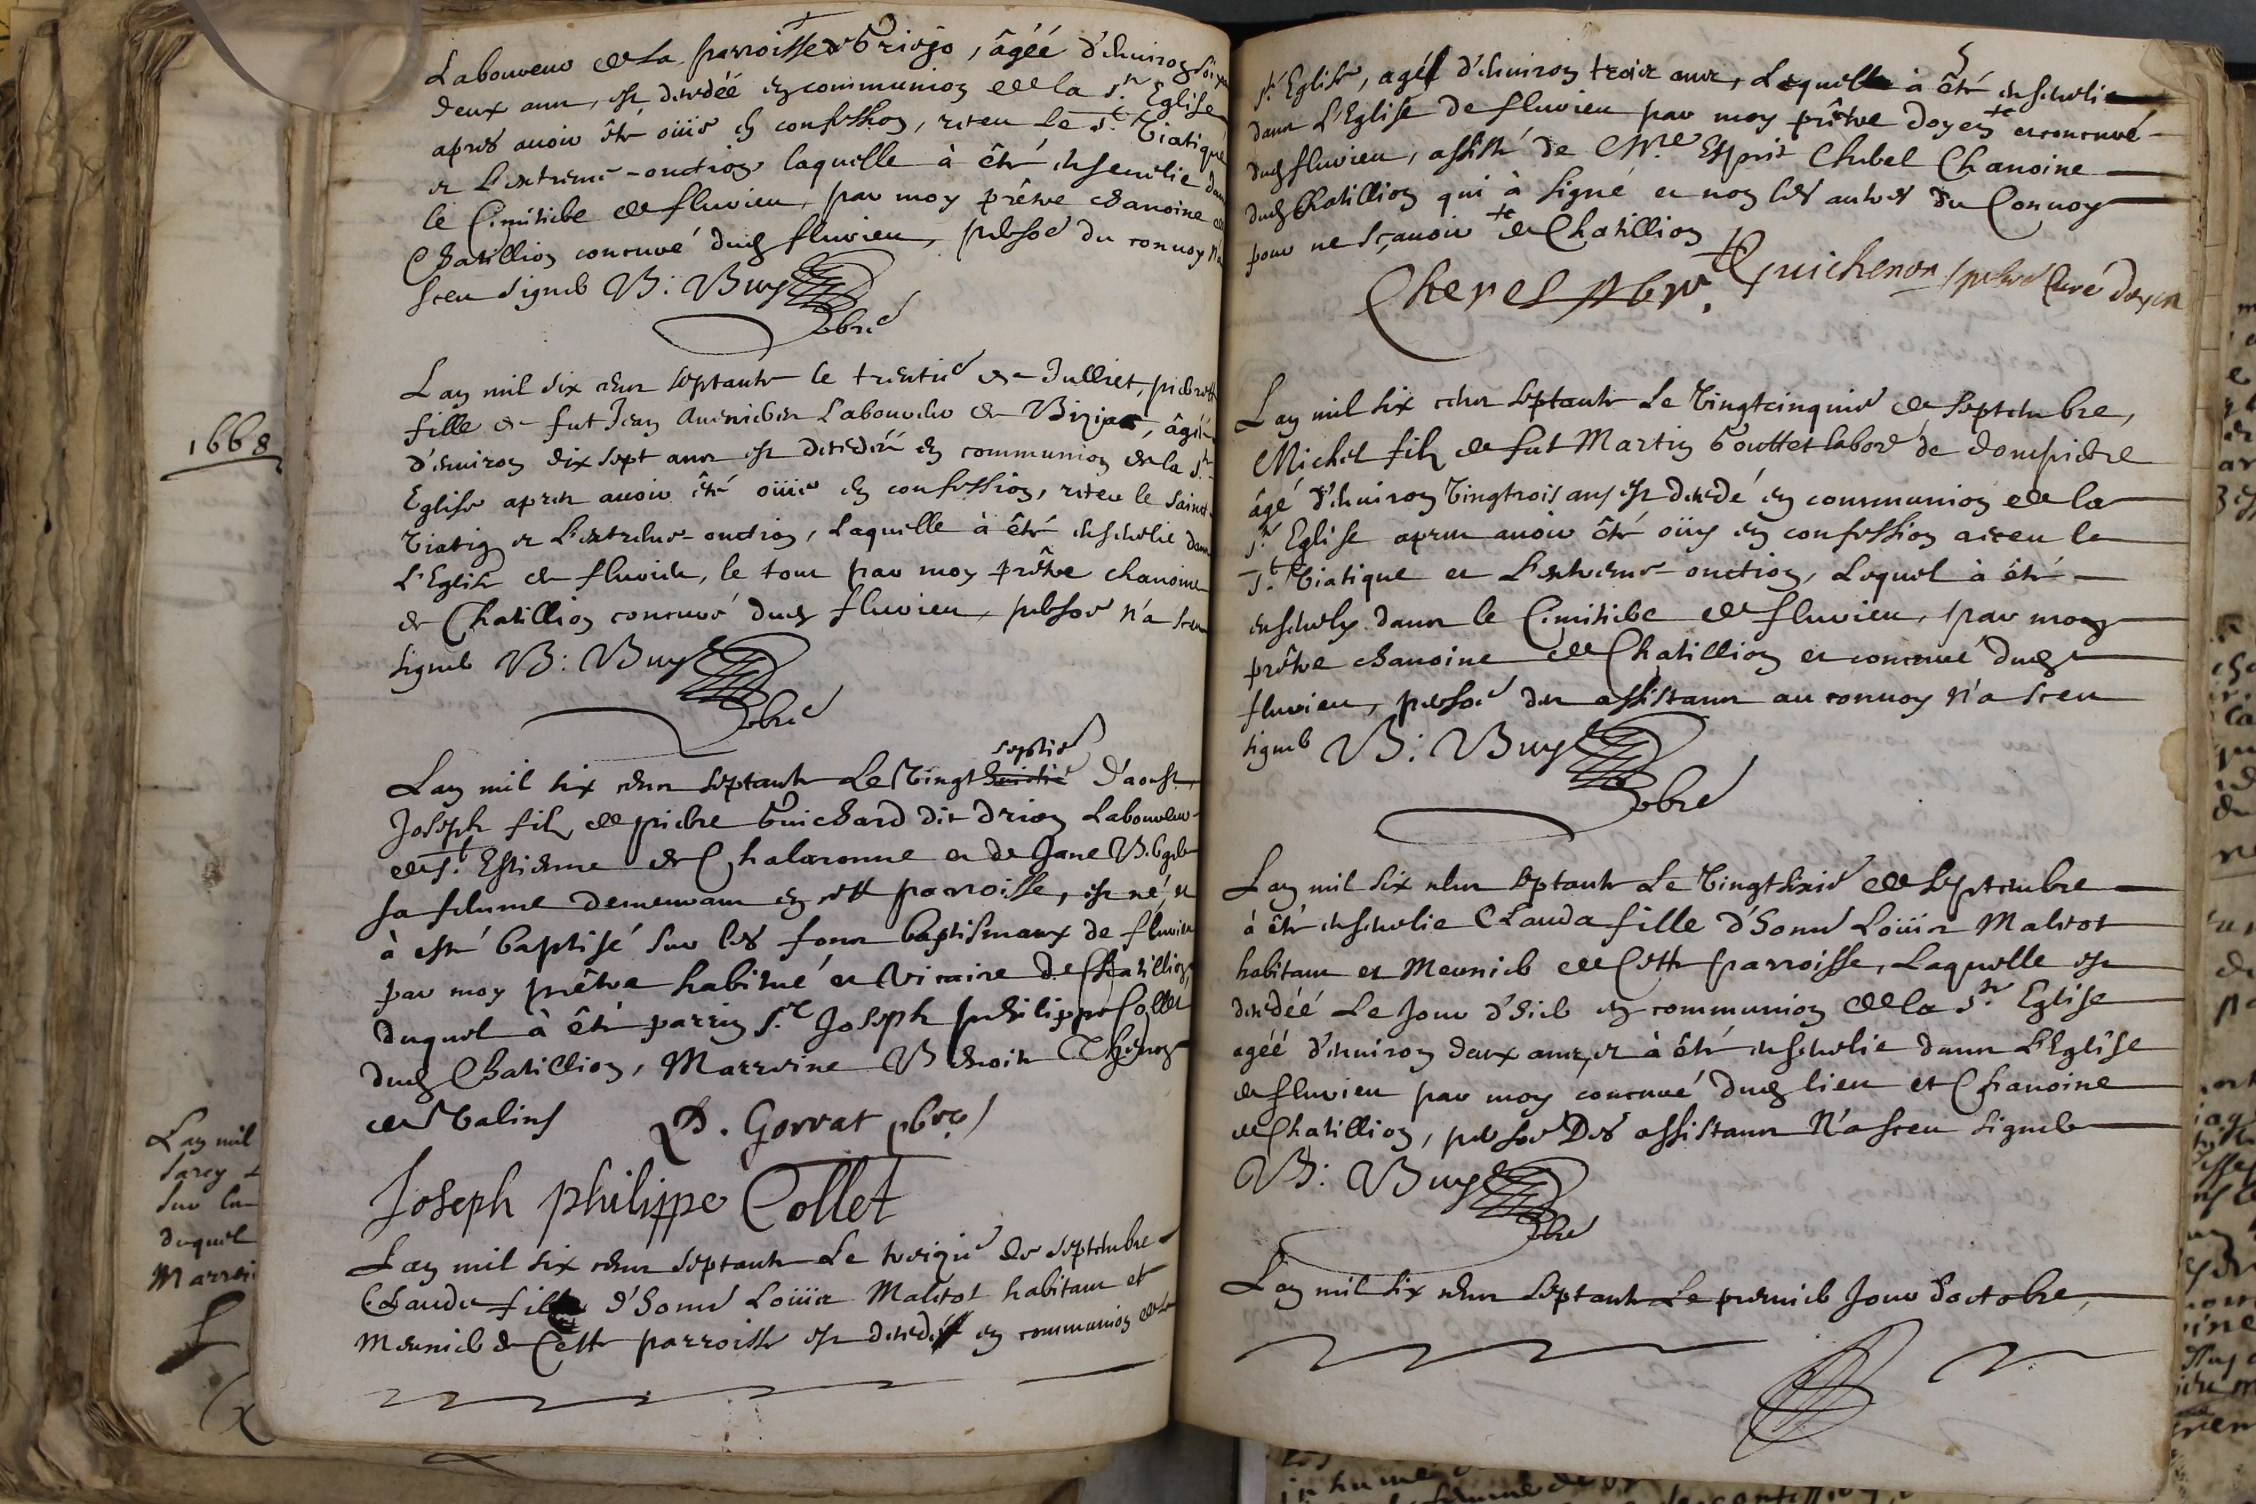 Laboureur de la parroisse , âgéé d'enuiron
deux ans, est decedéé en communion de la Ste Eglise
apres auoir été oüie en confession, receu le St Viatique
et L'extreme-onction laquelle à été enseuelie dans
le Cimitiere de fluuieu, par moy prêtre chanoine de
Chatillion concuré dudt fluuieu, persoe du conuoy n'a
sceu signer B: Buy
pbre
L'an mil six cens septante le trentie de Julliet, pierrette
fille de fut Jean Laboureur de Bizia, âgéé
d'enuiron dix sept ans est decedéé en communion de la Ste
Eglise apres auoir été oüie en confession, receu le sainct
Viatiq et L'extreme-onction, Laquelle à été enseuelie dans
L'Eglise de fluuieu, le tout par moy prêtre chanoine
de Chatillion concuré dudt fluuieu, persoe n'a sceu
signer B: Buy
pbre
1668
septie
L'an mil six cens septante Le Vingt huictie d'aoust
Joseph fils de pierre Guichard dit drion Laboureur
de St Estienne de Chalaronne et de Jane
sa femme demeurant en cette parroisse, est né, et
à esté baptisé sur les fons baptismaux de fluuieu
par moy prêtre habitué et Vicaire de Chatillion,
duquel à été parrin Sr Joseph philippe Collet
dudt Chatillion, Marreine Benoite
de Valins D. Gorrat pbre
Joseph philippe Collet
L'an mil six cens septante Le treizie de septembre
Clauda fille d'honne Loüis Malcot habitant et
Meunier de Cette parroisse est decedéé en communion de la
L'an mil
sur les
duquel
Marrei
5
Ste Eglise, agéé d'enuiron trois ans, Laquelle à été enseuelie
dans L'Eglise de fluuieu par moy prêtre doyen et concuré
dudt fluuieu, assisté de Mre Esprit Cherel Chanoine
dudt Chatillion qui à signé et non les autres du Conuoy
pour ne sçauoir de Chatillion
Cherel pbr. Guichenon pbre Curé doyen
L'an mil six cens septante Le Vingtcinquie de septembre,
Michel fils de fut Martin Gouttet labor de dompierre
âgé d'enuiron Vingtrois ans est decedé en communion de la
Ste Eglise apres auoir été oüy en confession receu le
St Viatique et L'extreme-onction, Lequel à été
enseuely dans le Cimitiere de fluuieu, par moy
prêtre chanoine de Chatillion et concuré dudt
fluuieu, persoe des assistans au conuoy n'a sceu
signer B: Buy
pbre
L'an mil six cens septante Le Vingtsixie de septembre
à été enseuelie Clauda fille d'honne Loüis Malcot
habitant et Meunier de Cette parroisse, Laquelle est
decedéé Le Jour d'hier en communion de la Ste Eglise
agéé d'enuiron deux ans, et à été enseuelie dans L'Eglise
de fluuieu par moy concuré dudt lieu et Chanoine
de Chatillion, persoe Des assistans N'a sceu signer
B: Buy
pbre
L'an mil six cens septante Le premier Jour d'octobre,